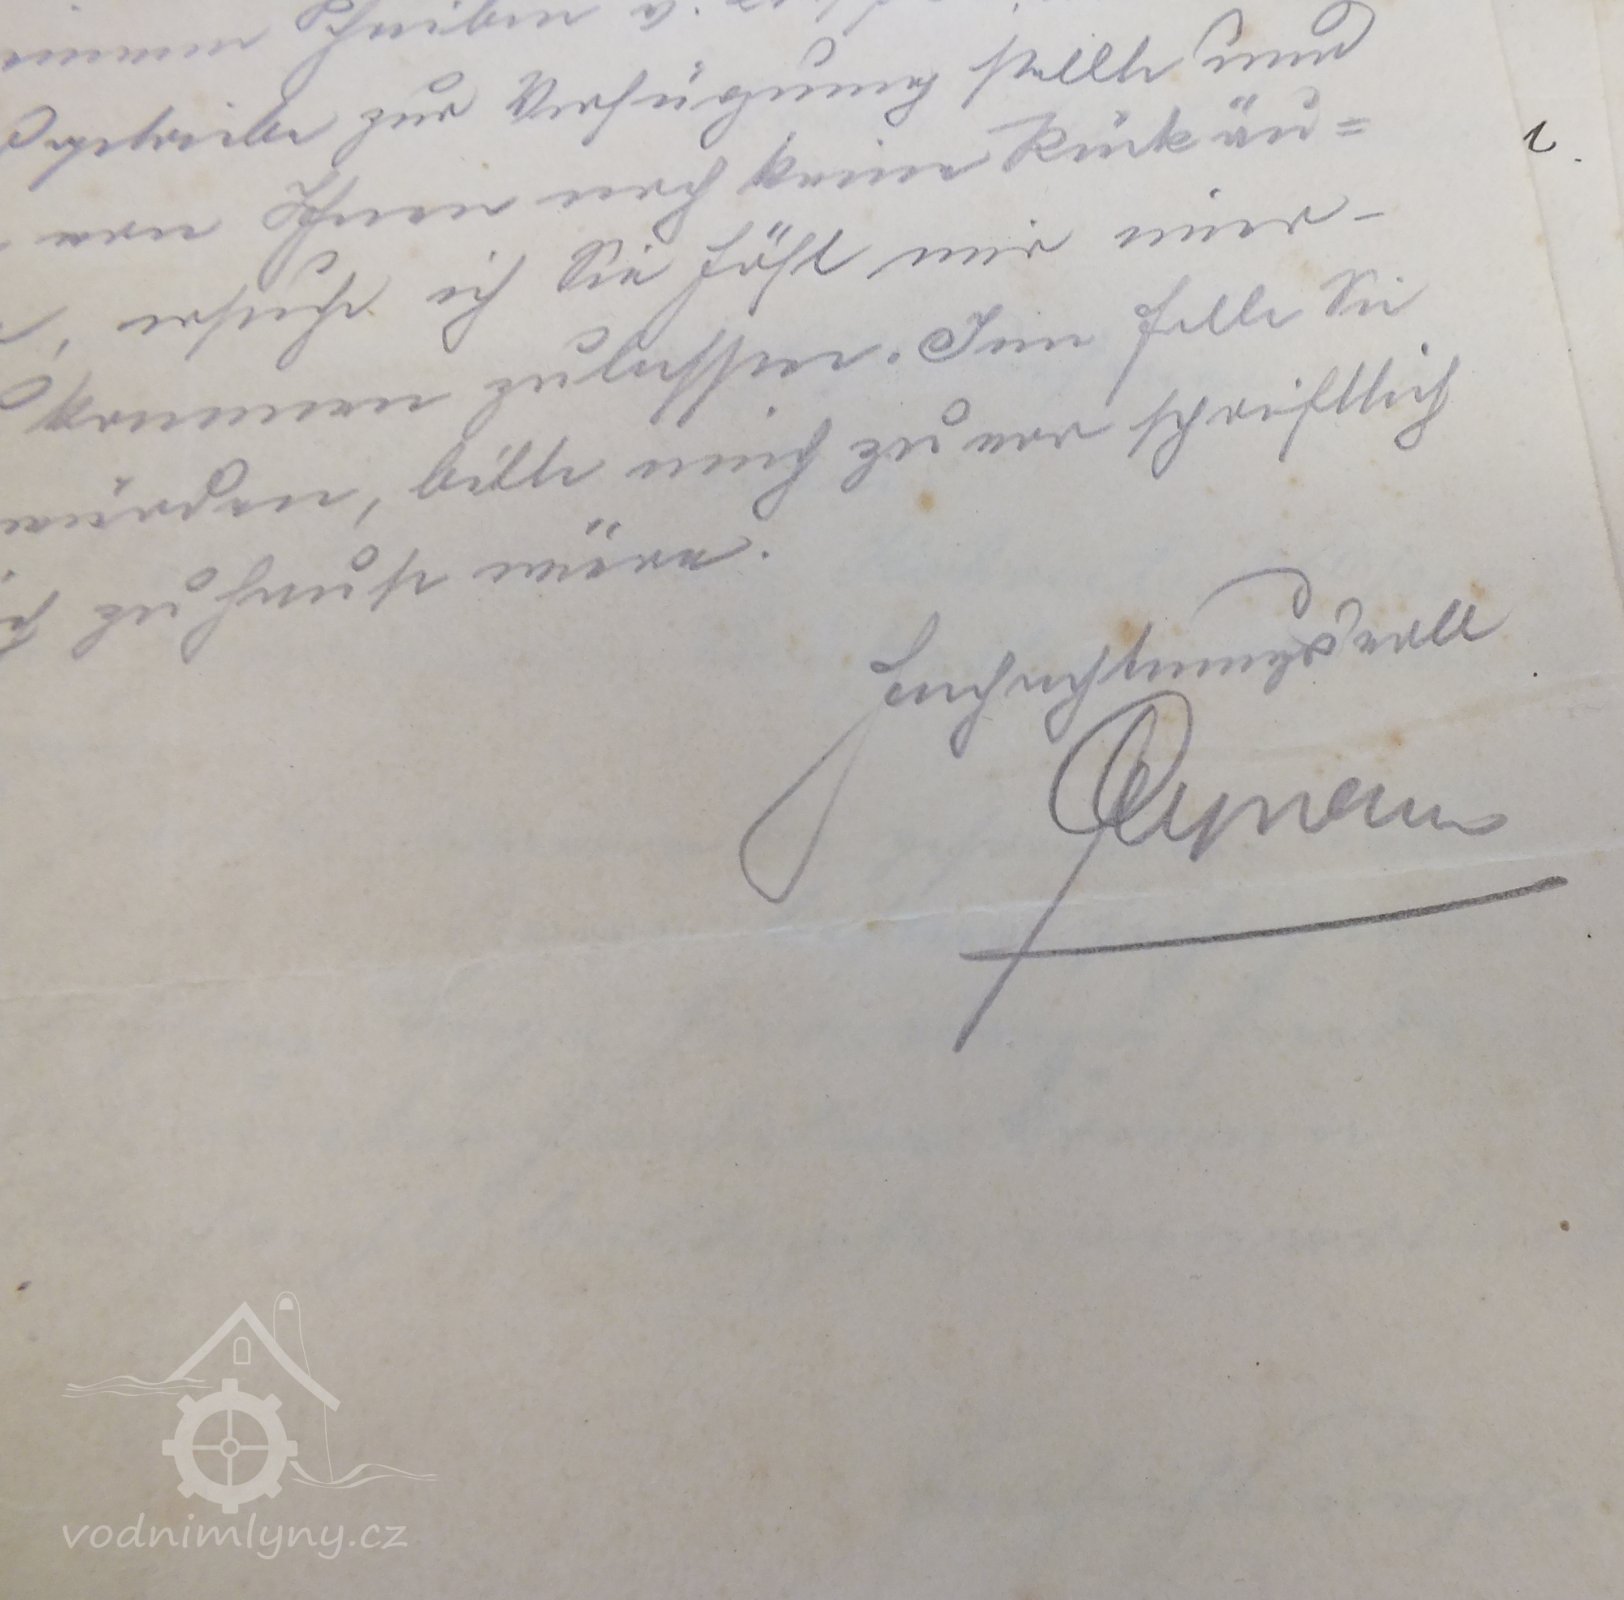 meinem Schreiben v.
getriebe zur Verfügung stellte und
von Ihnen noch keine Rückäu=
, ersuche ich Sie höfl mir nier-
kommen zulassen. Im falle Sie
würden, bitte mich zuvor schriftlich
zuhause wäre.
Hochachtungsvoll
vodnimlyny.cz